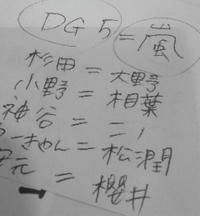 DG5=嵐
杉田=大野
小野=相葉
神谷=二ノ
ーきゃん=松潤
元=櫻井